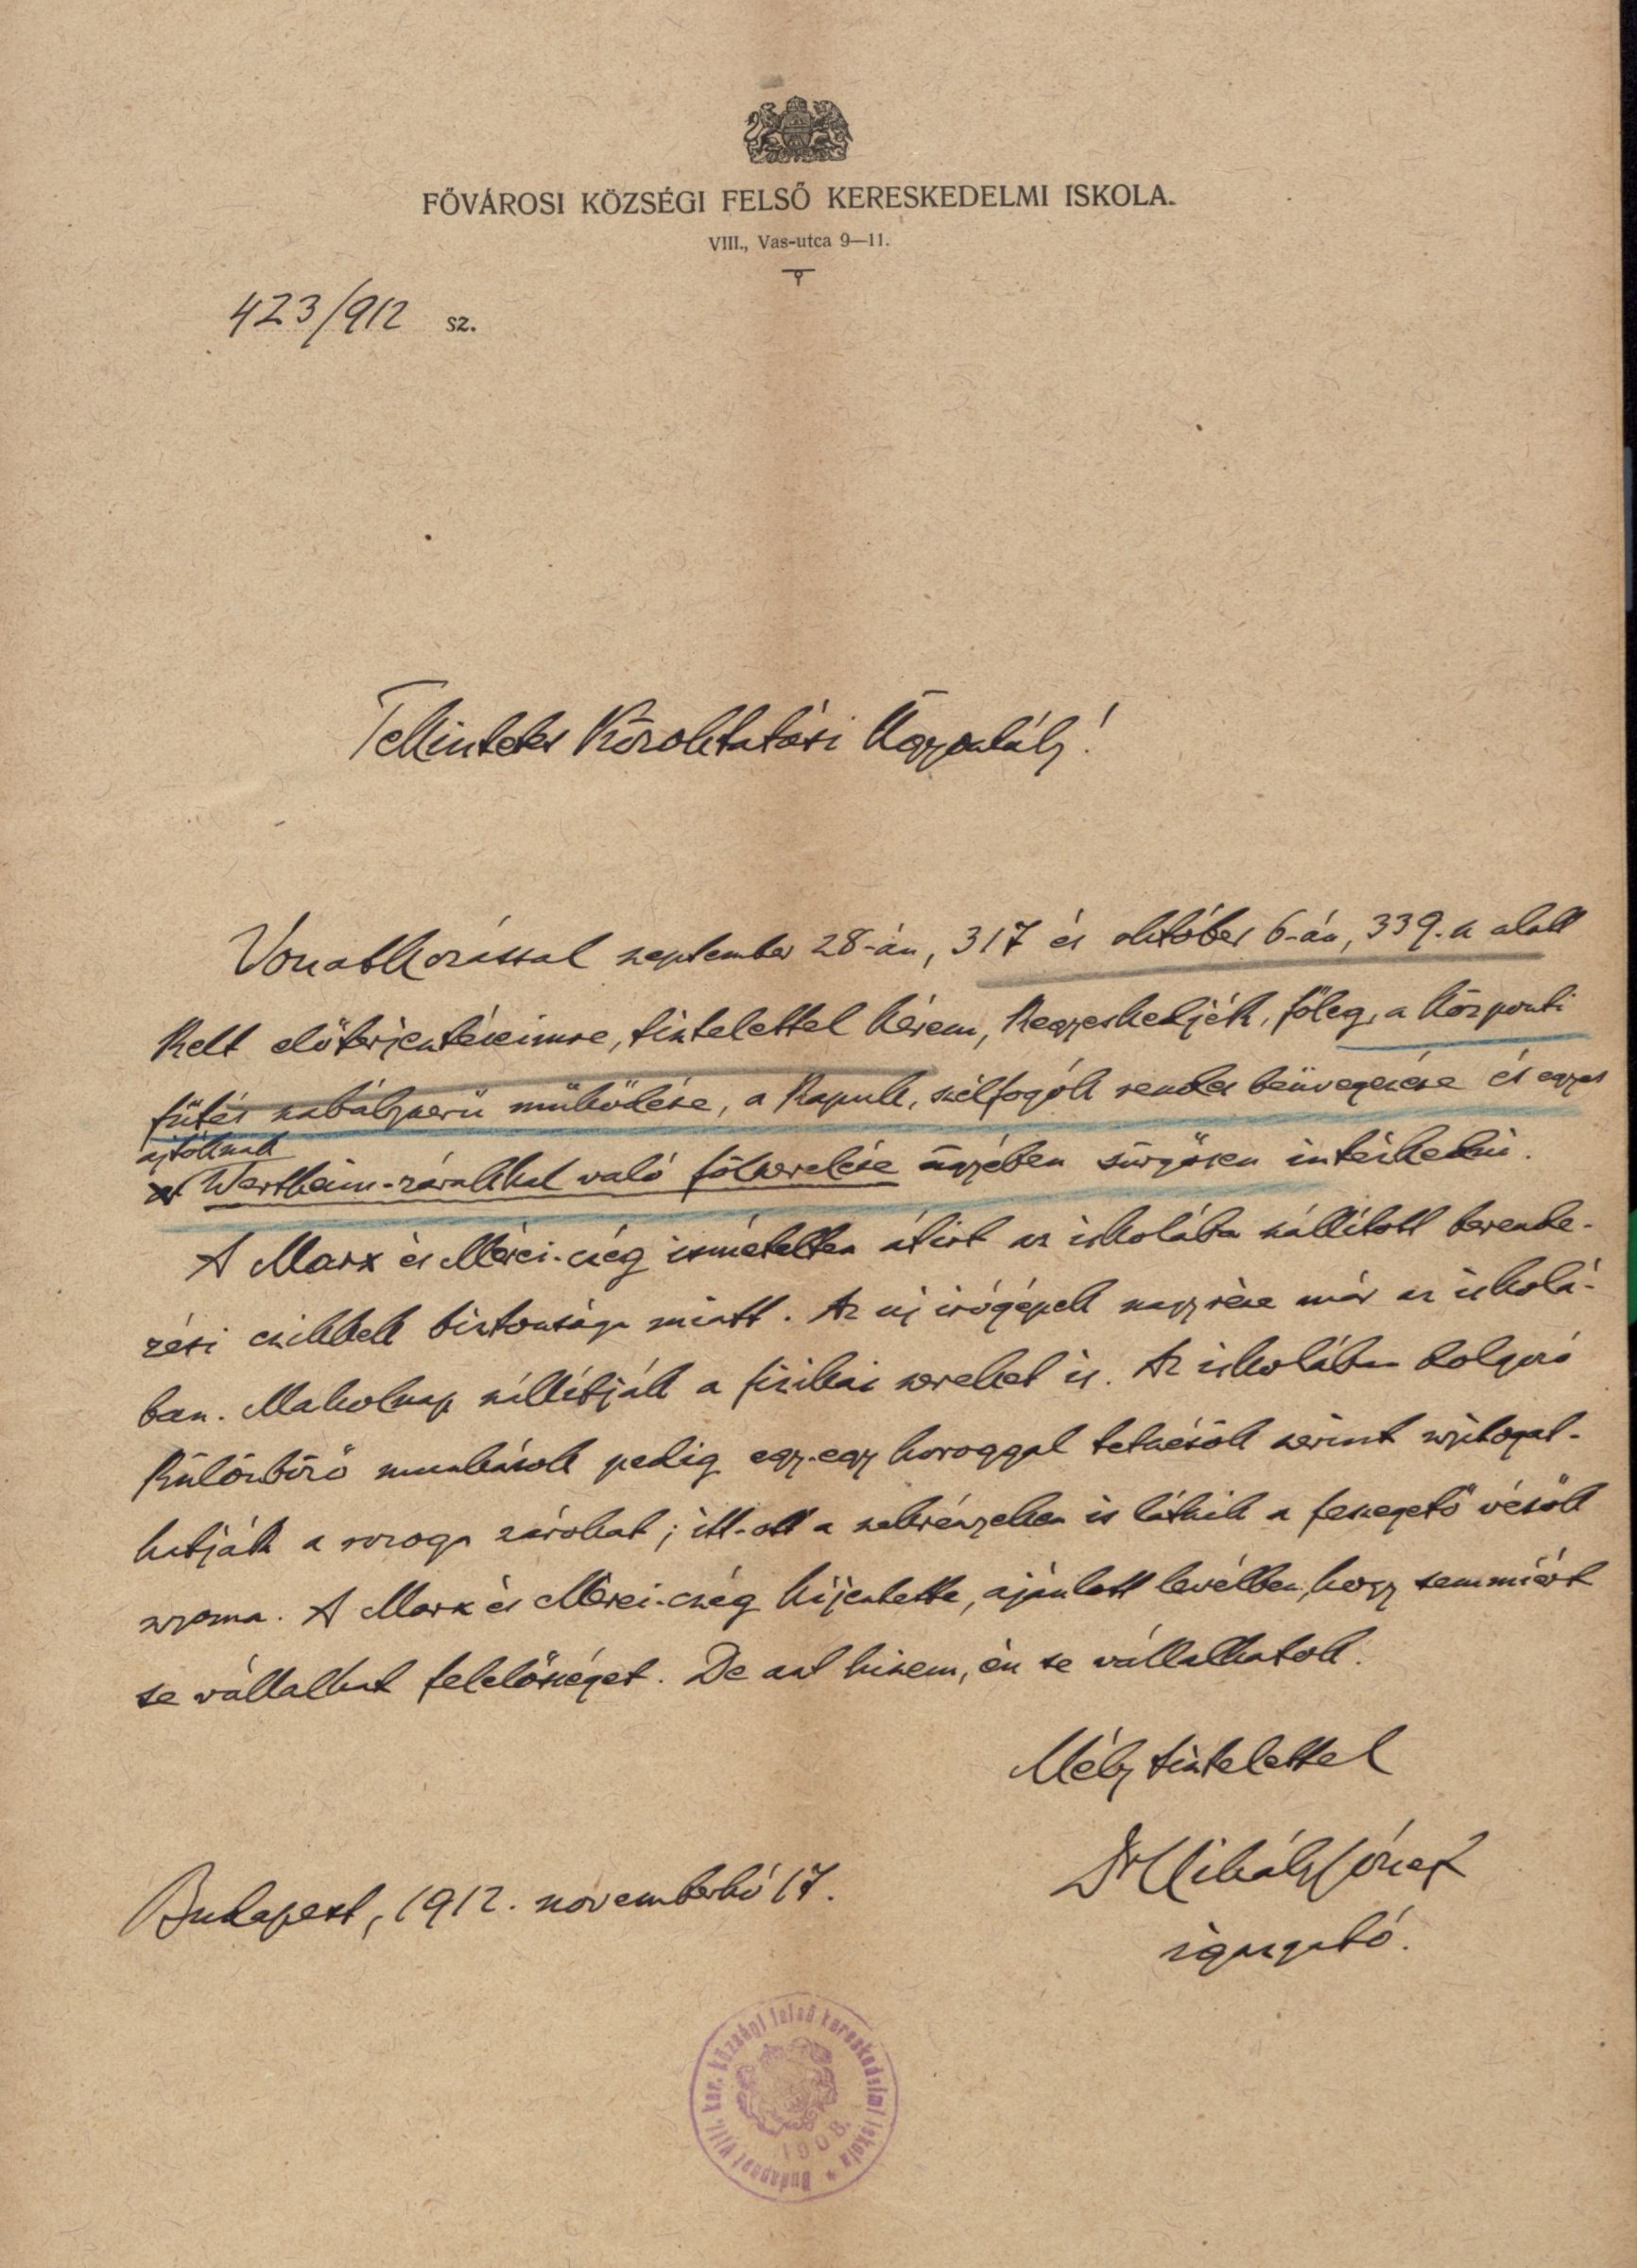 FŐVÁROSI KÖZSÉGI FELSŐ KERESKEDELMI ISKOLA.
VIII., Vas-utca 9—11.
423/912 sz.
Tekintetes Közoktatási Ügyosztály!
Vonatkozással szeptember 28-án, 317 és október 6-án, 339. sz alatt
kelt előterjesztéseimre, tisztelettel kérem, kegyeskedjék, főleg, a központi
fűtés szabályszerű működése, a kapuk, szélfogók rendes beüvegezése és egyes
ajtóknak
Wertheim-zárakkal való fölszerelése ügyében sürgősen intézkedni.
A Marx és Mérei-cég ismételten átírt az iskolába szállított berende-
zési cikkek biztonsága miatt. Az új írógépek nagy része már az iskolá-
ban. Maholnap szállítják a fizikai szereket is. Az iskolában dolgozó
különböző munkások pedig egy-egy horoggal tetszésök szerint nyitogat-
hatják a rozoga zárokat; itt-ott a szekrényeken is látszik a feszegető vésők
nyoma. A Marx és Mérei-cég kijentette, ajánlott levélben, hogy semmiért
se vállalhat felelősséget. De azt hiszem, én se vállalhatok.
Mély tisztelettel
Dr Mihály József
igazgató.
Budapest, 1912. novemberhó 17.
Budapest VIII. ker. községi felső kereskedelmi iskola *
1908.